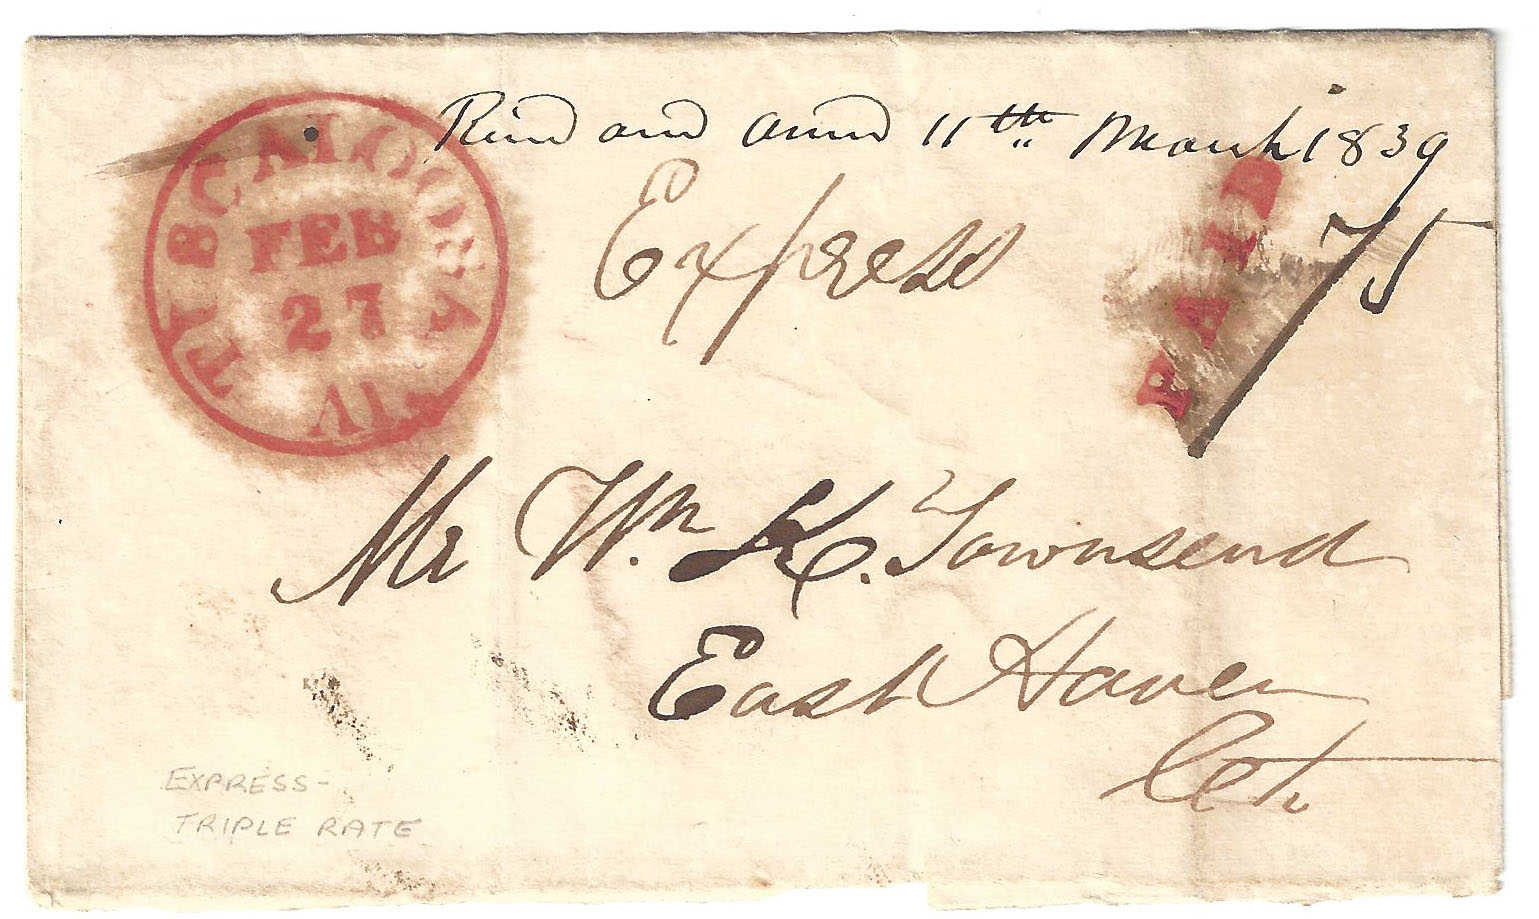 Recd and ansd 11th March 1839
TUSCALOOSA
FEB
27
Express
PAID
75
Mr Wm K. Townsend
East Haven
Ct.
EXPRESS-
TRIPLE RATE